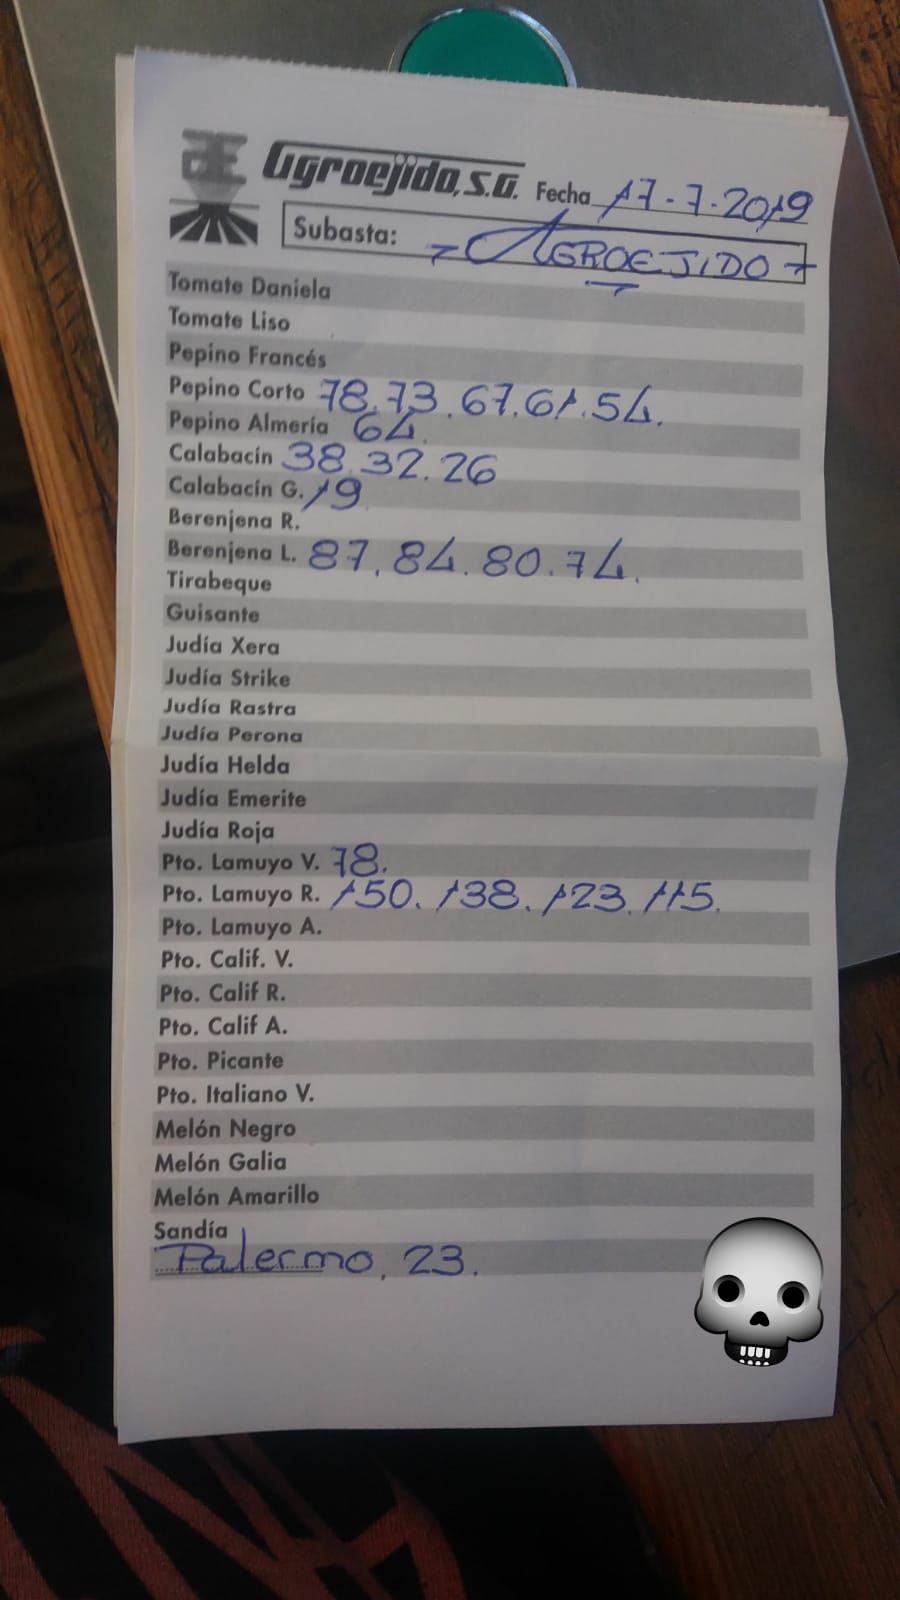 Agroejido, S.A. Fecha 17-7-2019
Subasta: AGROEJIDO
Tomate Daniela
Tomate Liso
Pepino Francés
Pepino Corto 78.73.67.61.54.
Pepino Almería 64.
Calabacín 38.32.26
Calabacín G. 19
Berenjena R.
Berenjena L. 87.84.80.74.
Tirabeque
Guisante
Judía Xera
Judía Strike
Judía Rastra
Judía Perona
Judía Helda
Judía Emerite
Judía Roja
Pto. Lamuyo V. 78.
Pto. Lamuyo R. 150.138.123.115.
Pto. Lamuyo A.
Pto. Calif. V.
Pto. Calif R.
Pto. Calif A.
Pto. Picante
Pto. Italiano V.
Melón Negro
Melón Galia
Melón Amarillo
Sandía
Palermo. 23.